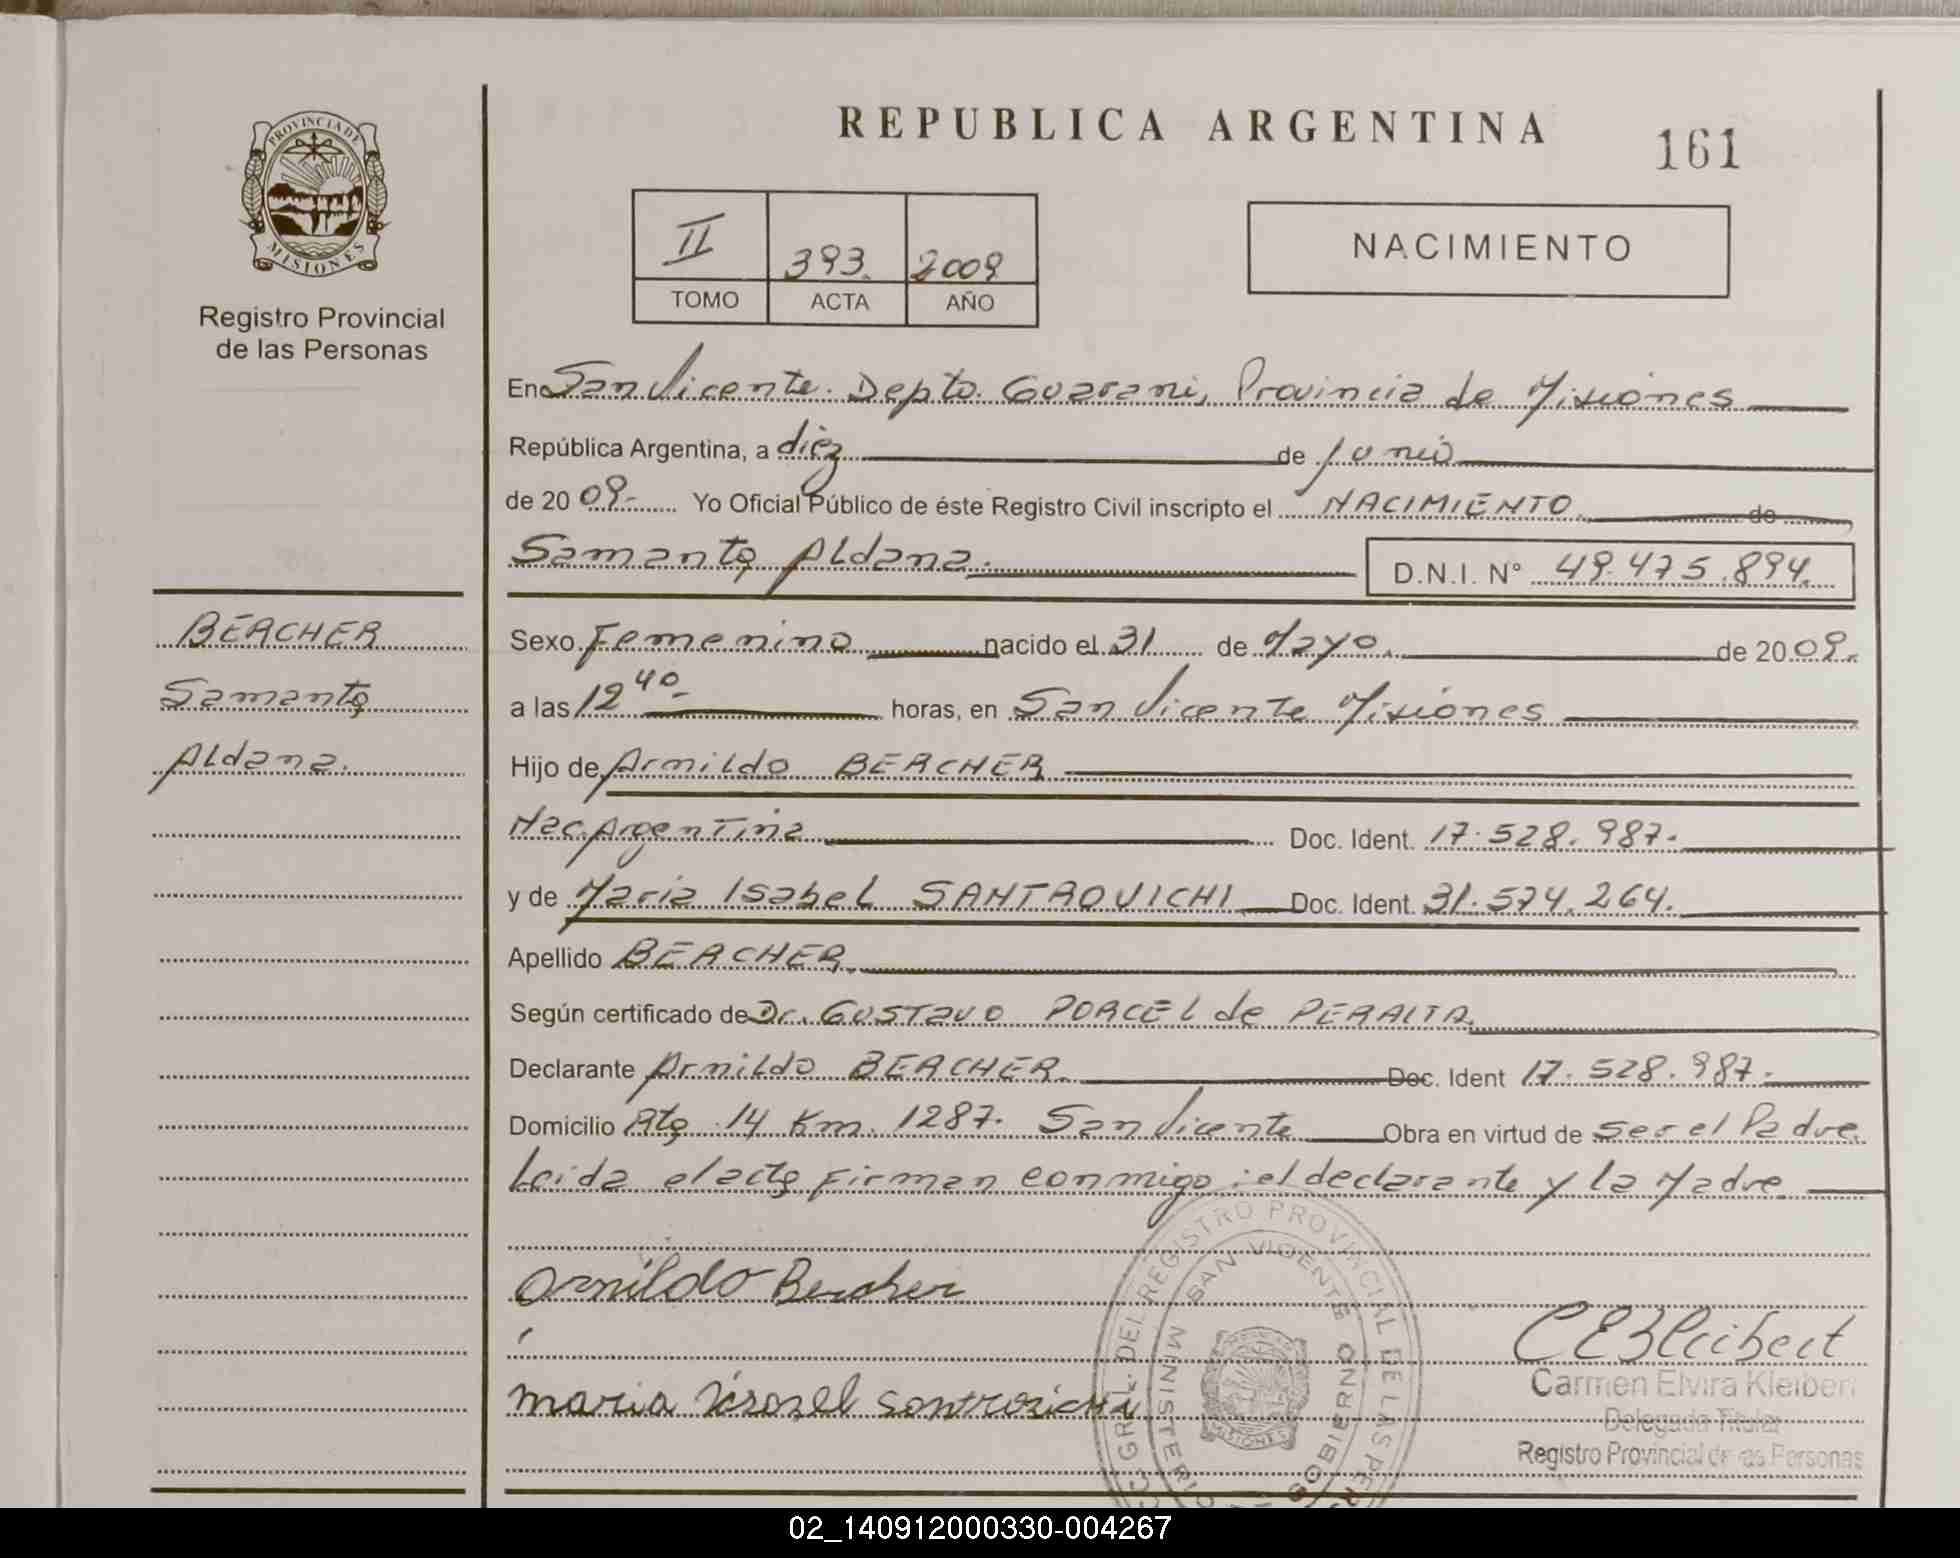 PROVINCIA DE
MISIONES
Registro Provincial
de las Personas
REPUBLICA ARGENTINA
161
II 393. 2009
TOMO ACTA AÑO
NACIMIENTO
En San Vicente. Depto. Guarani, Provincia de Misiones
República Argentina, a diez de junio
de 20 09.- Yo Oficial Público de éste Registro Civil inscripto el NACIMIENTO de
Samanta Aldana.
D.N.I. N° 49.475.894.
BERCHER
Samanta
Aldana.
Sexo Femenino nacido el 31 de Mayo. de 20 09.
a las 12 40- horas, en San Vicente Misiones
Hijo de Arnildo BERCHER
Nac. Argentina Doc. Ident. 17.528.987.
y de Maria Isabel SANTROVICHI Doc. Ident. 31.574.264.
Apellido BERCHER.
Según certificado de Dr. Gustavo PORCEL de PERALTA.
Declarante Arnildo BERCHER. Doc. Ident 17.528.987.
Domicilio Rta 14 Km. 1287. San Vicente Obra en virtud de ser el Padre.
Leida el acta Firman conmigo: el declarante y la Madre
Arnildo Bercher
Maria
DEL REGISTRO PROVINCIAL DE LAS
SAN VICENTE
MINISTERIO GOBIERNO
MISIONES
Carmen Elvira Kleibert
Delegada Titular
Registro Provincial de las Personas
02_140912000330-004267